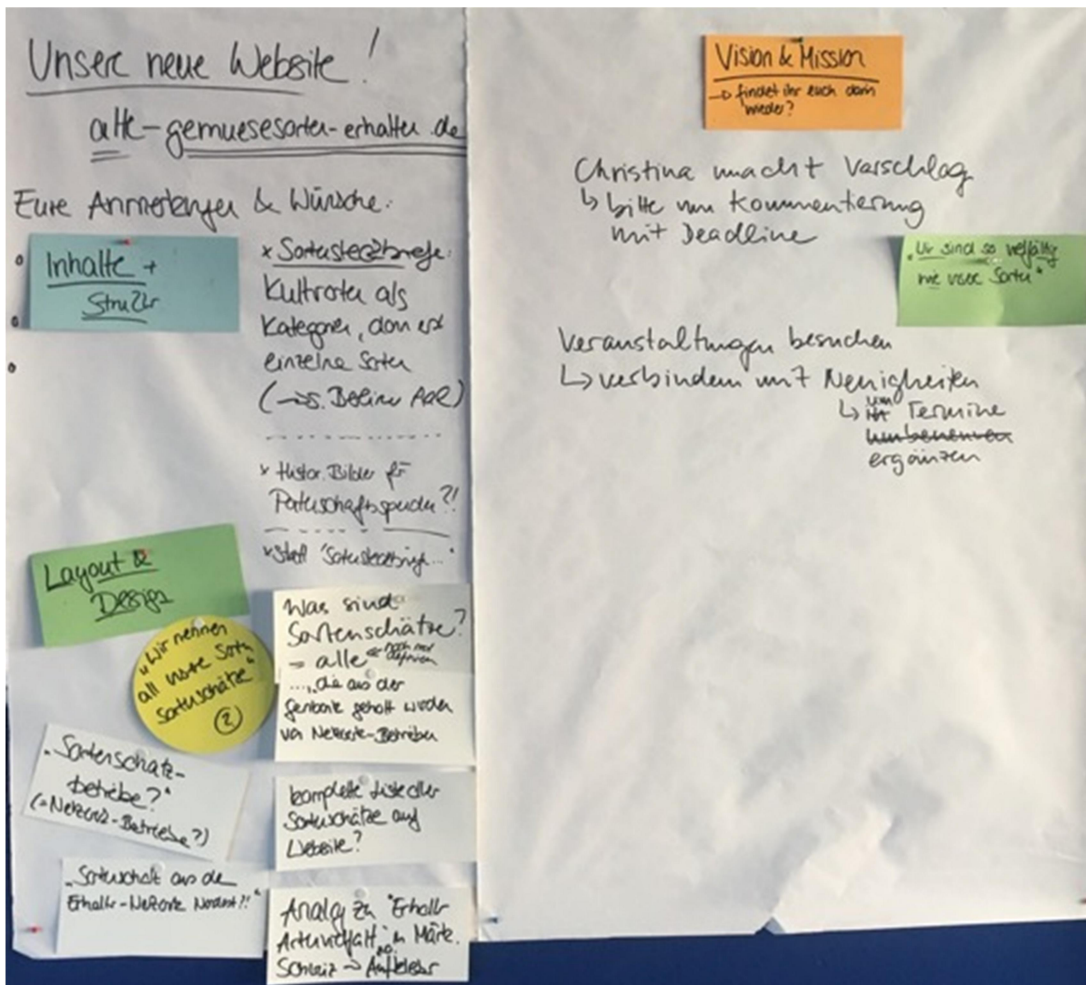 Unsere neue Website!
alte-gemuesesorten-erhalten.de
Eure Anmerkungen & Wünsche:
Inhalte +
Struktur
x Sortensteckbriefe:
Kulturarten als
Kategorien, dann erst
einzelne Sorten
(→ s. Berliner)
x Histor. Bilder für
Patenschaftsspenden?!
x Statt "Sortensteckbriefe..."
Layout &
Design
"Wir nennen
all unsere Sorten
Sortenschätze"
(?)
Was sind
Sortenschätze?
= alle noch mal definieren
..., die aus der
Genbank geholt wurden
von Netzwerk-Betrieben
"Sortenschatz-
betriebe?"
(= Netzwerk-Betriebe?)
komplette Liste aller
Sortenschätze auf
Website?
"Sortenschatz aus dem
Erhalter-Netzwerk Nordost?!"
Analog zu "Erhalter
Artenvielfalt" in Märk.
Schweiz → Aufkleber
Vision & Mission
→ findet ihr euch darin
wieder?
Christina macht Vorschlag
↳ bitte um Kommentierung
mit Deadline
"Wir sind so vielfältig
wie unsere Sorten"
Veranstaltungen besuchen
↳ verbinden mit Neuigkeiten
↳ um Termine
umbenennen
ergänzen